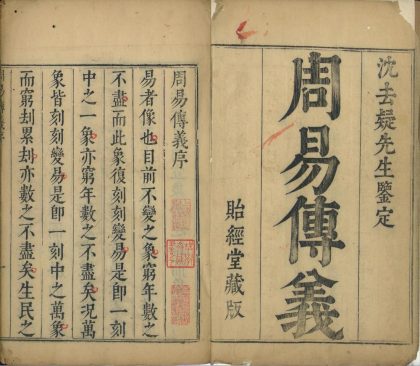 沈去疑先生鑒定
周易傳義
貽經堂藏版
周易傳義序
易者像也目前不變之象窮年數之
不盡而此象復刻刻變易是即一刻
中之一象亦窮年數之不盡矣况萬
象皆刻刻變易是即一刻中之萬象
而窮刦累刦亦數之不盡矣生民之